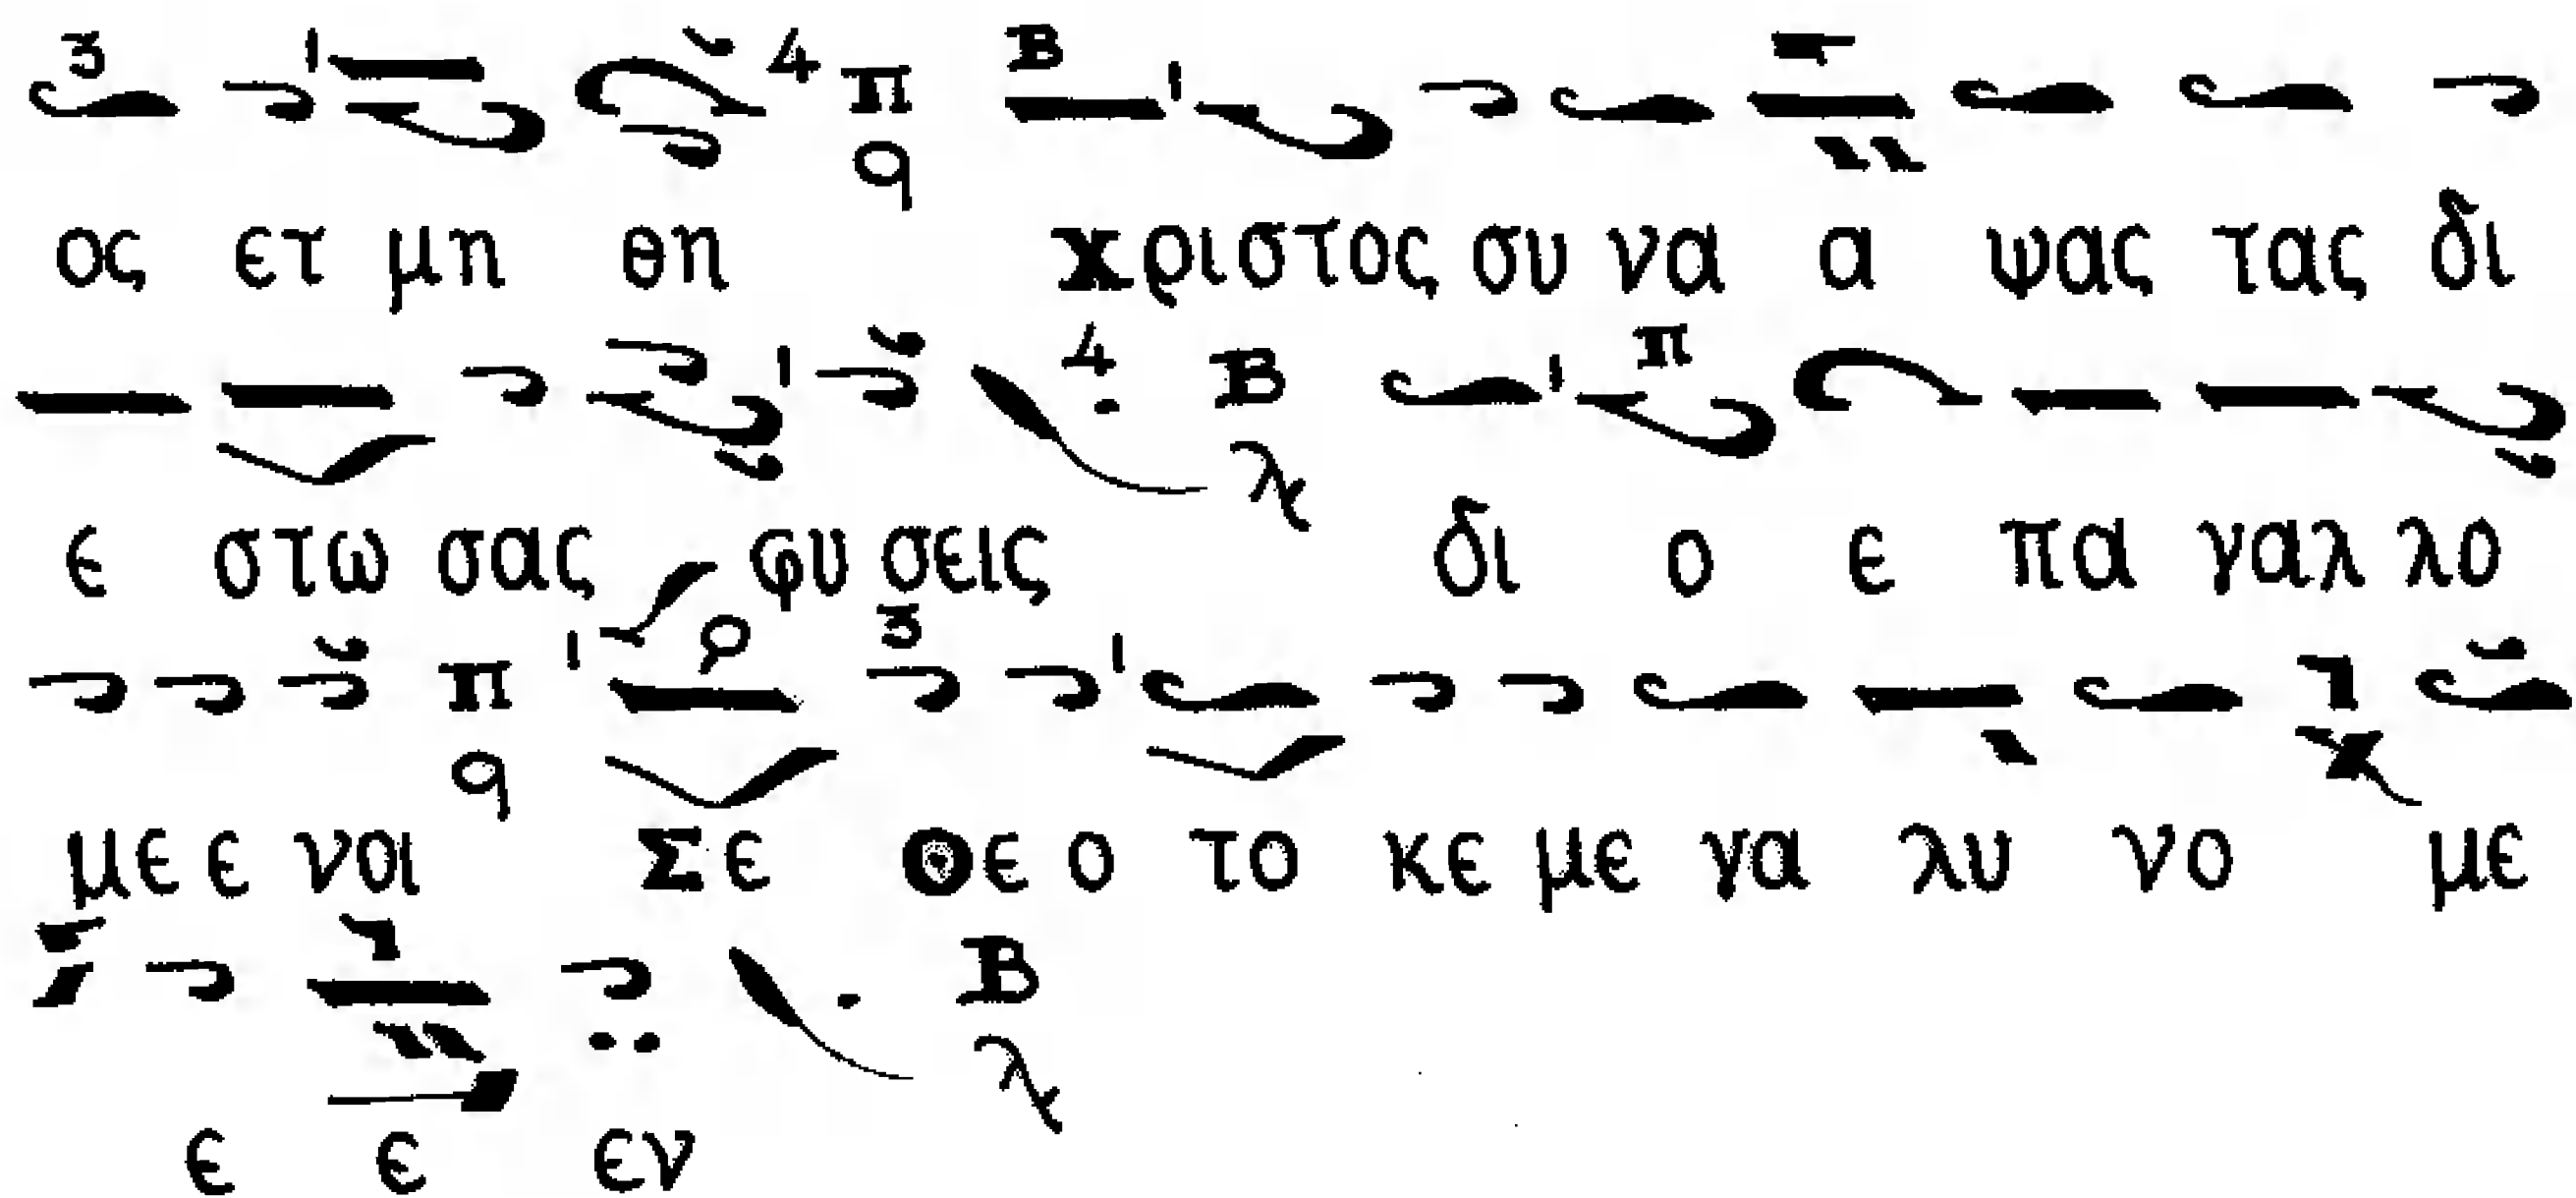 3 4 π B
ος ετ μη θη χριστος συ να α ψας τας δι
4 B π
ε στω σας φυ σεις δι ο ε πα γαλ λο
π 3
με ε νοι Σε Θε ο το κε με γα λυ νο με
B
ε ε εν